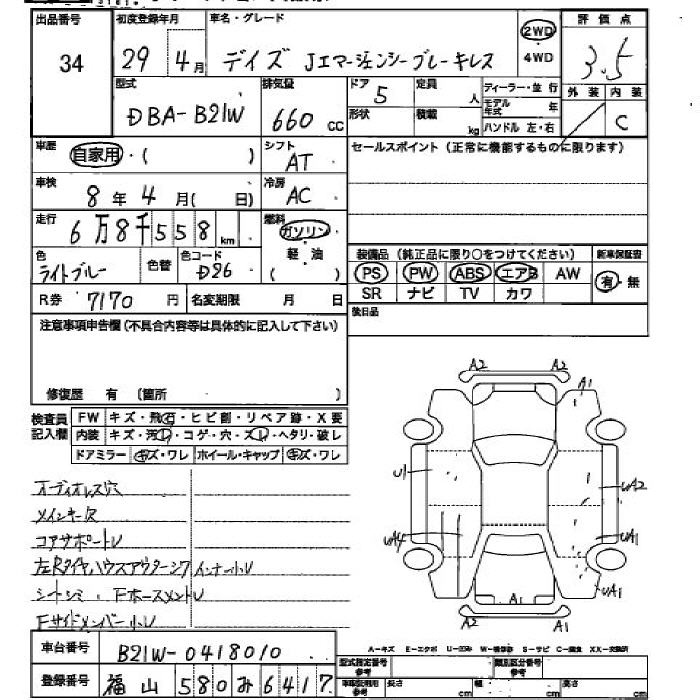 出品番号
34
初度登録年月
29年4月
車名・グレード
デイズ Jエマージェンシーブレーキレス
2WD
4WD
評価点
3.5
外装 内装
C
型式
DBA-B21W
排気量
660 cc
ドア
5
定員
人
形状
積載
kg
ディーラー・並行
モデル年式 年
ハンドル 左・右
車歴
自家用・( )
シフト
AT
セールスポイント (正常に機能するものに限ります)
車検
8年4月( 日)
冷房
AC
走行
6万8千558km
燃料
ガソリン
軽・油
( )
色
ライトブルー
色替
色コード
D26
装備品 (純正品に限り○をつけてください)
新車保証書
PS PW ABS エアB AW
有・無
SR ナビ TV カワ
R券 7170円
名変期限 月 日
後日品
注意事項申告欄(不具合内容等は具体的に記入して下さい)
修復歴 有 (箇所 )
検査員記入欄
FW キズ・飛石・ヒビ割・リペア跡・X要
内装 キズ・汚れ・コゲ・穴・スレ・ヘタリ・破レ
ドアミラー キズ・ワレ ホイール・キャップ キズ・ワレ
オーディオレス穴
メインキー欠
コアサポートU
左Rタイヤハウスアウターシワ インナー小U
シートシミ、FホースメントU
Fサイドメンバー小U
A2 A2
A1
U1
UA2
UA4
UA1
UA1
A1
A2 A2
車台番号
B21W-0418010
登録番号
福山 580 み 6417
A-キズ E-エクボ
型式指定番号
参考
類別区分番号
参考
参考
長さ cm
幅 cm
高さ cm